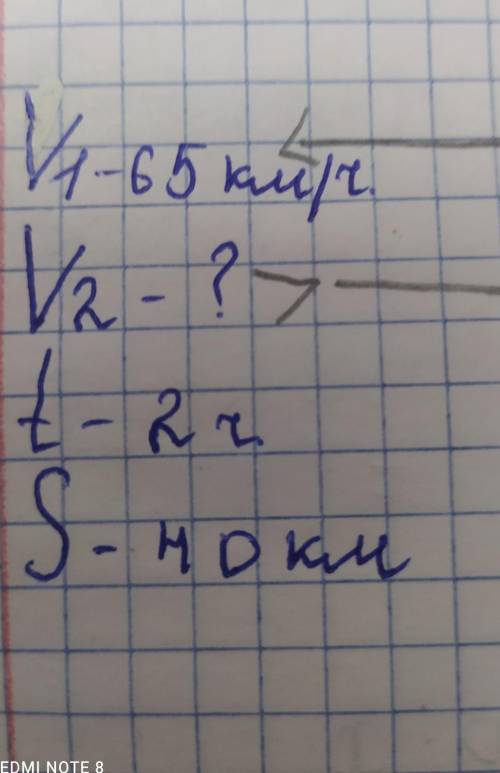 V1 - 65 км/ч.
V2 - ?
t - 2 ч.
S - 40 км
EDMI NOTE 8